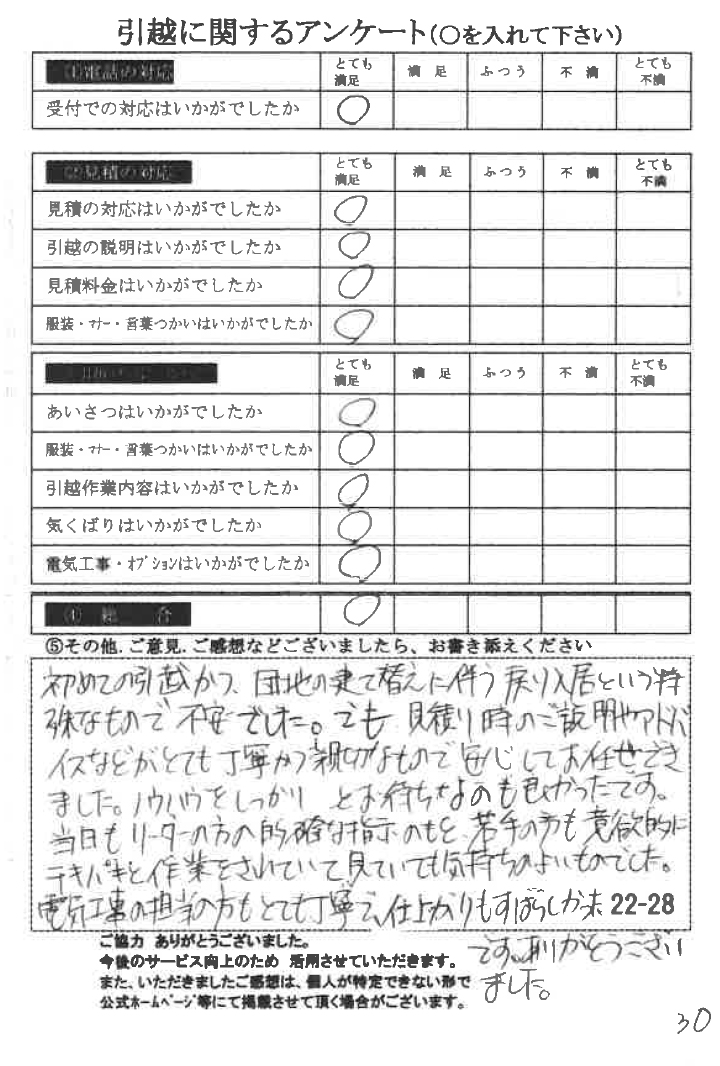 引越に関するアンケート(〇を入れて下さい)
①電話の対応 とても満足 満足 ふつう 不満 とても不満
受付での対応はいかがでしたか 〇
②見積の対応 とても満足 満足 ふつう 不満 とても不満
見積の対応はいかがでしたか 〇
引越の説明はいかがでしたか 〇
見積料金はいかがでしたか 〇
服装・マナー・言葉つかいはいかがでしたか 〇
とても満足 満足 ふつう 不満 とても不満
あいさつはいかがでしたか 〇
服装・マナー・言葉つかいはいかがでしたか 〇
引越作業内容はいかがでしたか 〇
気くばりはいかがでしたか 〇
電気工事・オプションはいかがでしたか 〇
④総合 〇
⑤その他.ご意見.ご感想などございましたら、お書き添えください
初めての引越かつ、団地の建て替えに伴う戻り入居という特
殊なもので不安でした。でも、見積り時のご説明やアドバ
イスなどがとても丁寧かつ親切なもので安心してお任せでき
ました。ノウハウをしっかりとお持ちなのも良かったです。
当日もリーダーの方の的確な指示のもと、若手の方も意欲的に
テキパキと作業をされていて見ていても気持ちのよいものでした。
電気工事の担当の方もとても丁寧で、仕上がりもすばらしかった 22-28
です。ありがとうござい
ました。
ご協力 ありがとうございました。
今後のサービス向上のため 活用させていただきます。
また、いただきましたご感想は、個人が特定できない形で
公式ホームページ等にて掲載させて頂く場合がございます。
30